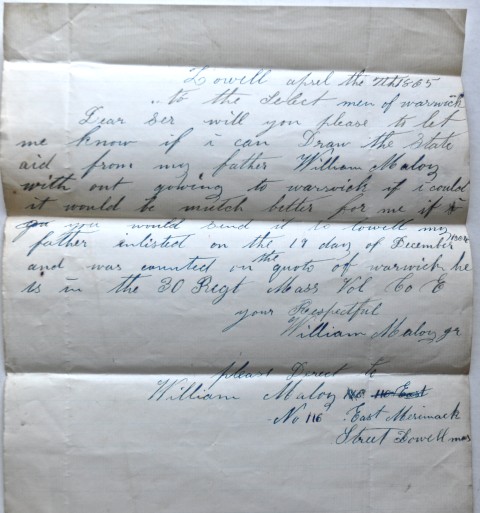 Lowell aprel the 7th 1865
to the Select men of warwick
Dear ser will you please to let
me know if i can Draw the State
aid from my father William Maloy
with out gowing to warwick if i could
it would be mutch better for me if
you would send it to lowell my
father enlisted on the 19 day of December 1864
and was counted on the quoto of warwick he
is in the 30 Regt Mass Vol Co E
your Respectful
William Maloy jr
please Direct to
William Maloy 116 116 East
No 116 East Merimack
Street Lowell mas